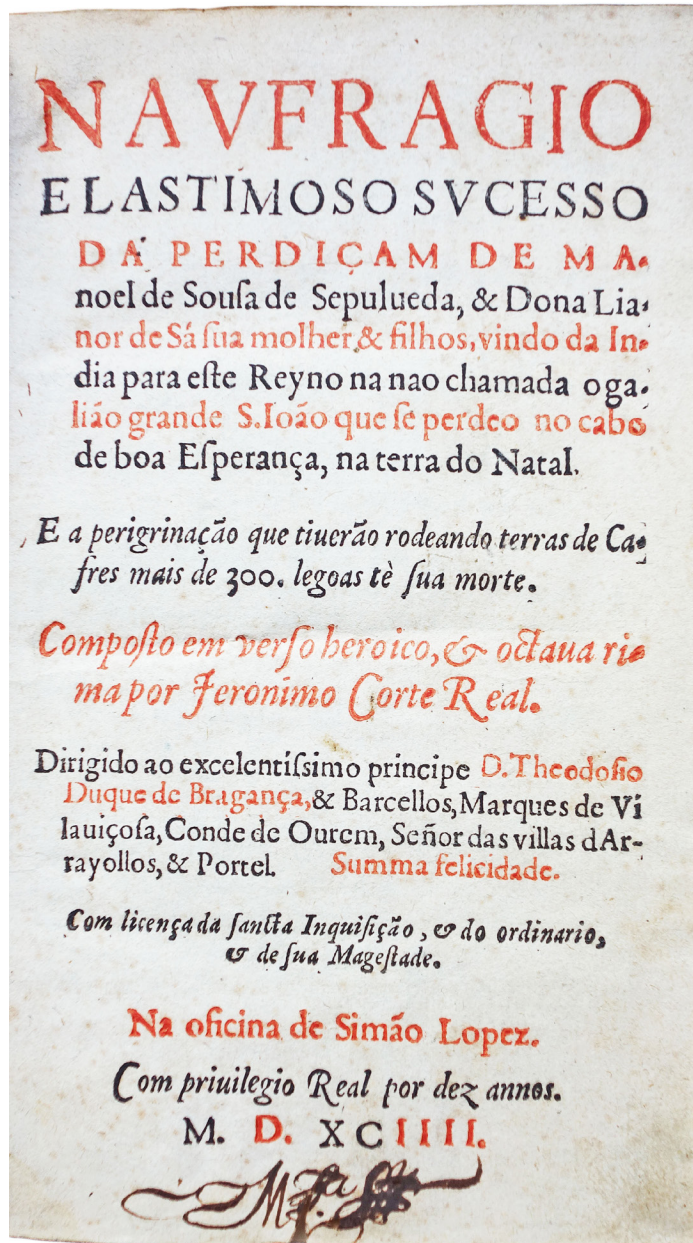 NAVFRAGIO
E LASTIMOSO SVCESSO
DA PERDIÇAM DE MA-
noel de Sousa de Sepulueda, & Dona Lia-
nor de Sá sua molher, & filhos, vindo da In-
dia para este Reyno na nao chamada o ga-
lião grande S. Ioão que se perdeo no cabo
de boa Esperança, na terra do Natal.
E a perigrinação que tiuerão rodeando terras de Ca-
fres mais de 300. legoas tè sua morte.
Composto em verso heroico, & octaua ri-
ma por Jeronimo Corte Real.
Dirigido ao excelentissimo principe D. Theodosio
Duque de Bragança, & Barcellos, Marques de Vi
lauiçosa, Conde de Ourem, Señor das villas dAr-
rayollos, & Portel. Summa felicidade.
Com licença da sancta Inquisição, & do ordinario,
& de sua Magestade.
Na oficina de Simão Lopez.
Com priuilegio Real por dez annos.
M. D. XCIIII.